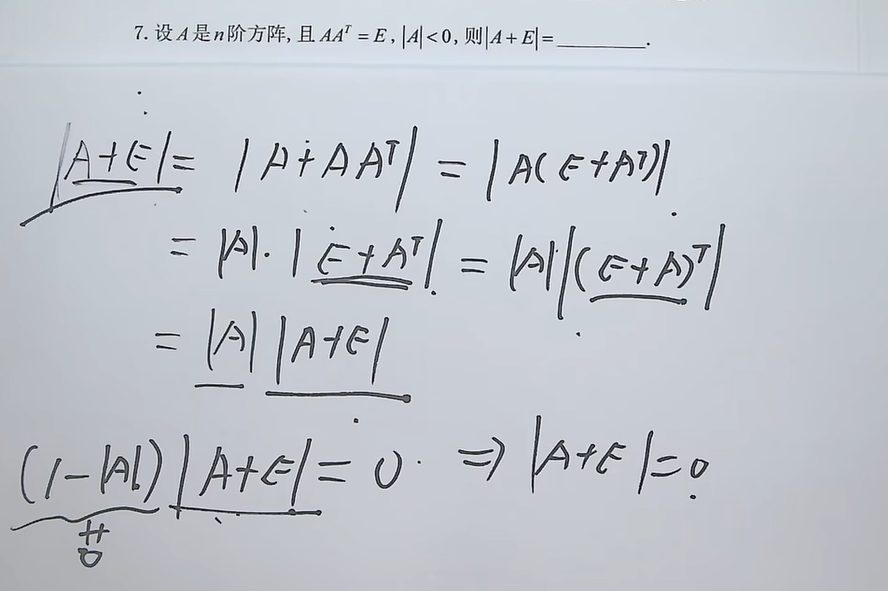 7. 设A是n阶方阵, 且AAᵀ=E, |A|<0, 则|A+E|=________.
|A+E| = |A+AAᵀ| = |A(E+Aᵀ)|
= |A|·|E+Aᵀ| = |A||(E+A)ᵀ|
= |A||A+E|
(1-|A|)|A+E|=0 ⇒ |A+E|=0
≠
0